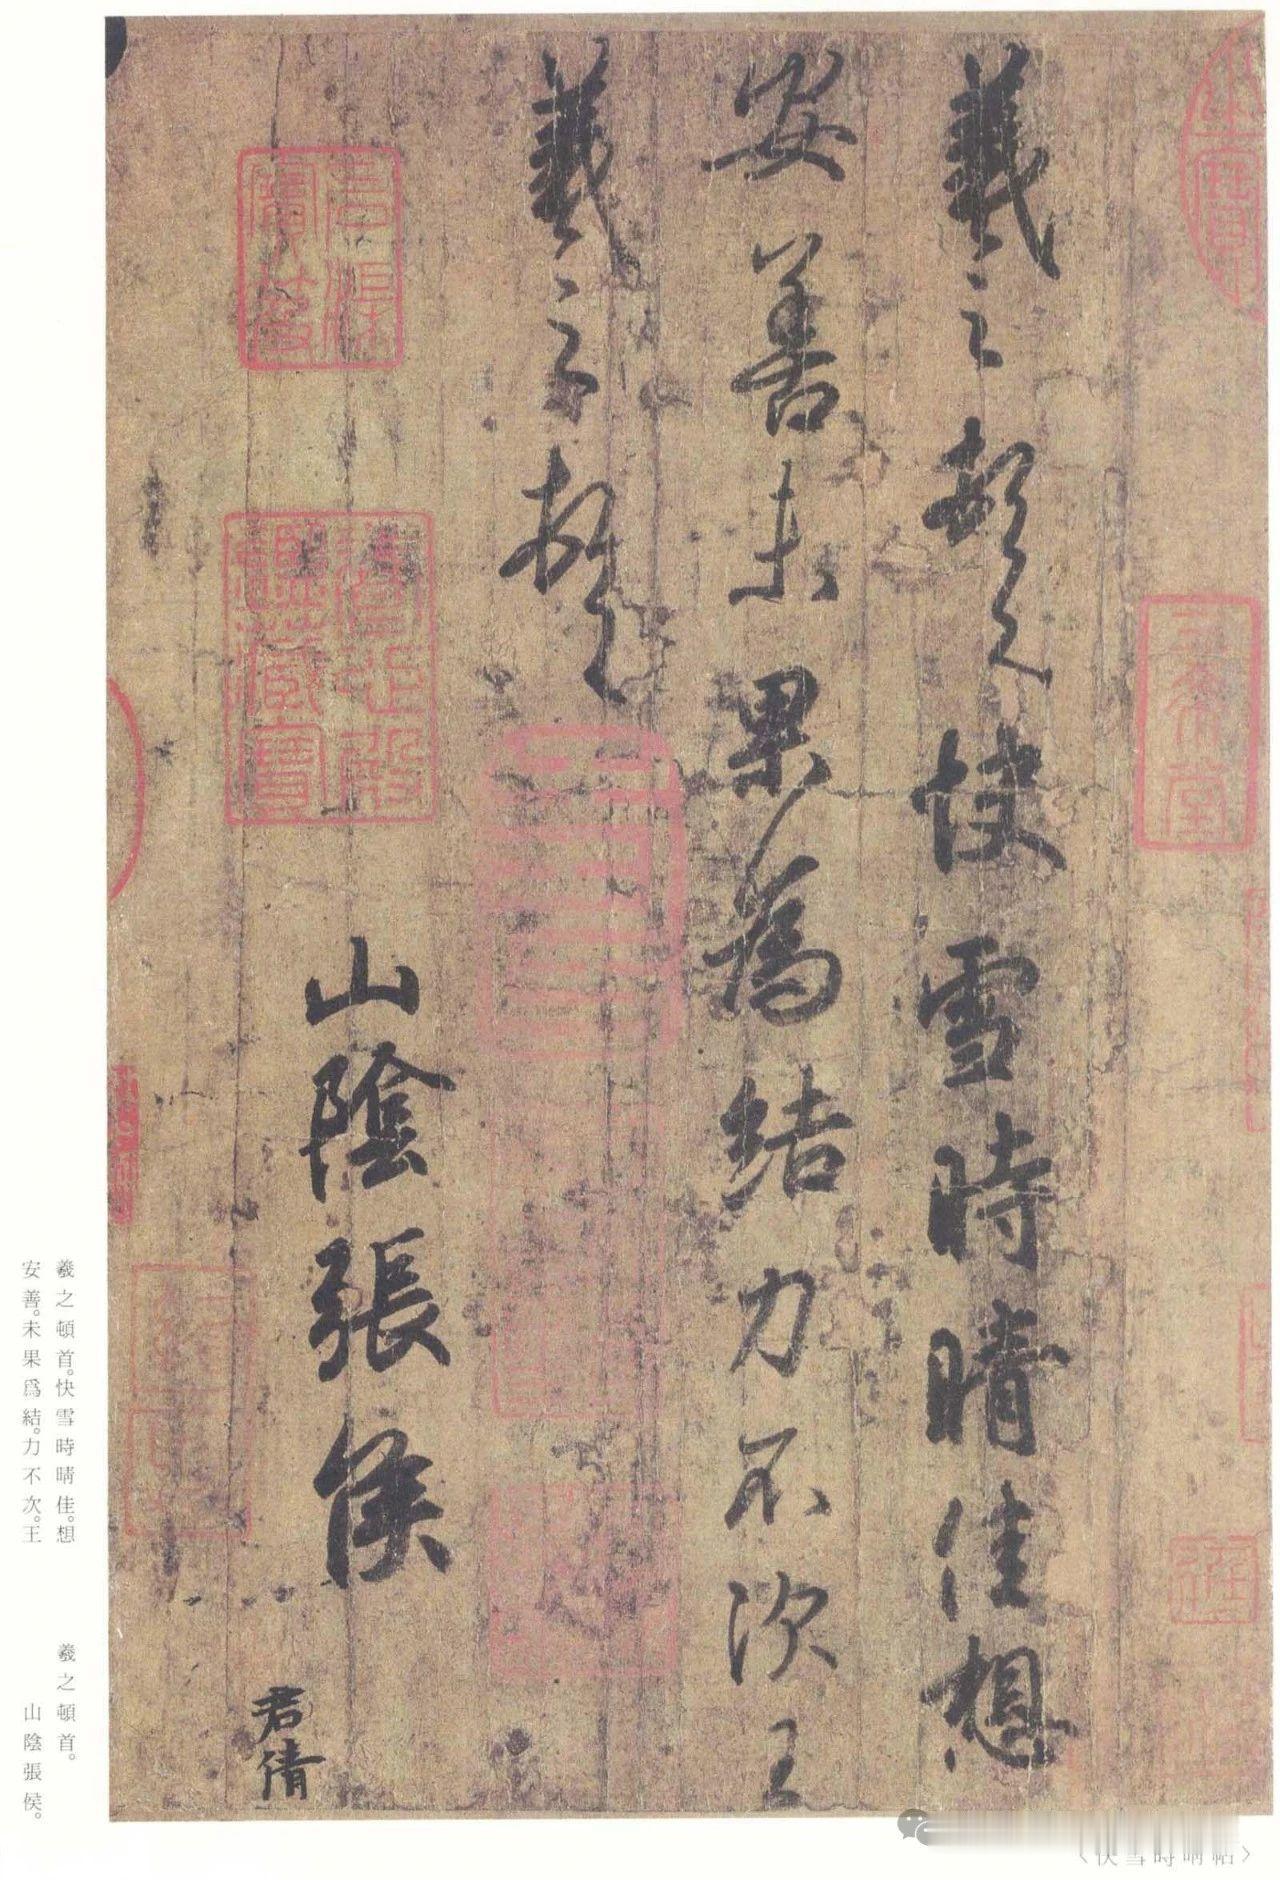 羲之頓首快雪時晴佳想
安善未果爲結力不次王
羲之頓首
山陰張侯
君倩
三希堂
羲之頓首。快雪時晴佳。想
安善。未果爲結。力不次。王
羲之頓首。
山陰張侯。
〈快雪時晴帖〉